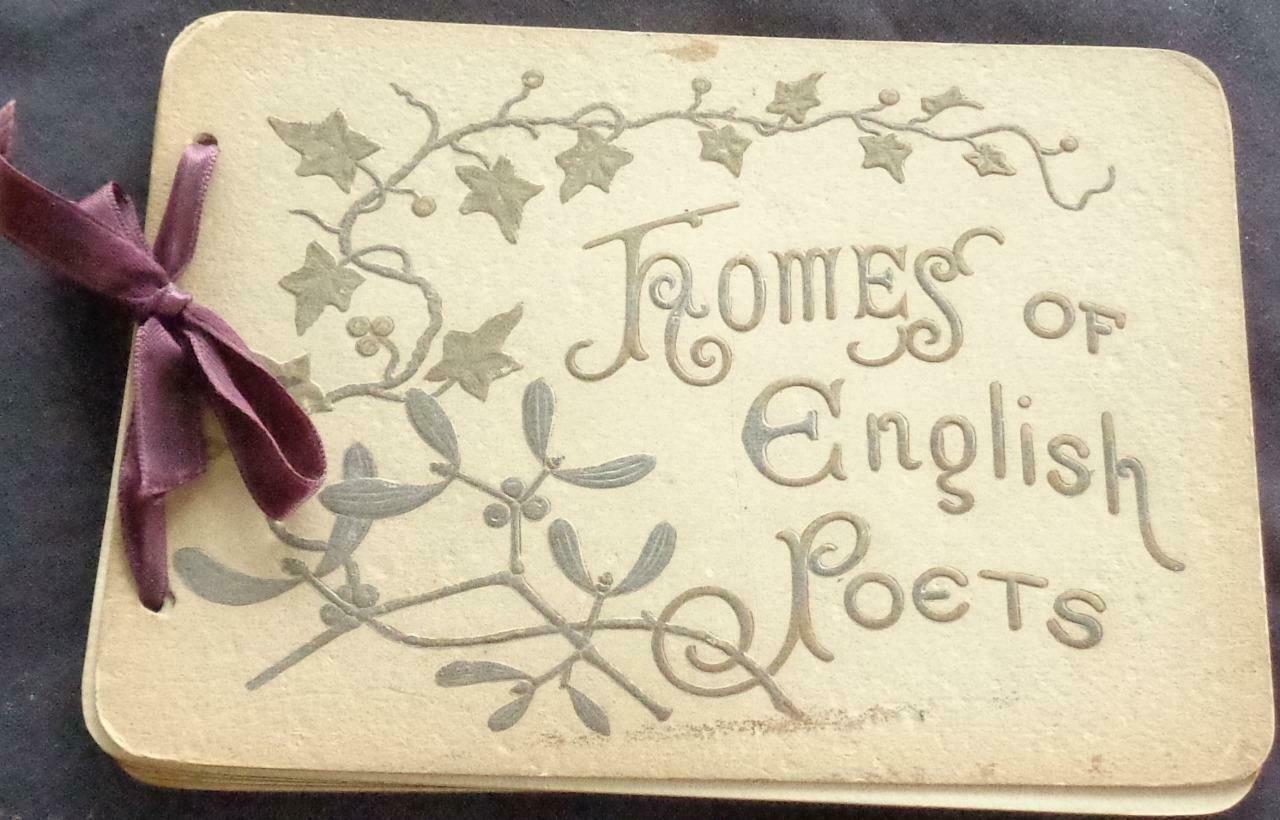 Homes of
English
Poets